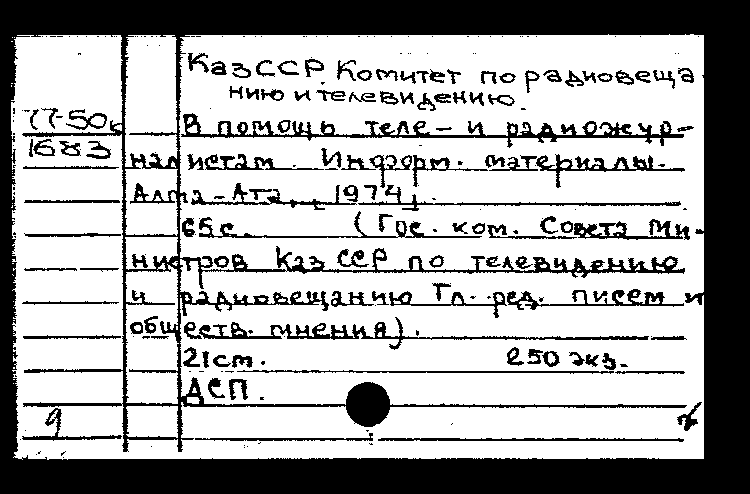 КазССР. Комитет по радиовеща
нию и телевидению.
77-50к
1683
В помощь теле- и радиожур-
налистам. Информ. материалы.
Алма-Ата, 1974.
65 с. (Гос. ком. Совета Ми-
нистров КазССР по телевидению
и радиовещанию Гл. ред. писем и
обществ. мнения).
21 см. 250 экз.
ДСП.
9